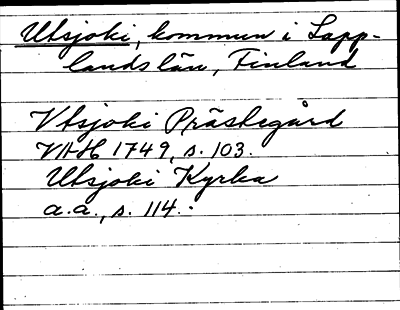 Utsjoki, kommun i Lapp-
lands län, Finland
Vtsjoki Prästegård
VAH 1749, s. 103.
Utsjoki Kyrka
a.a., s. 114.